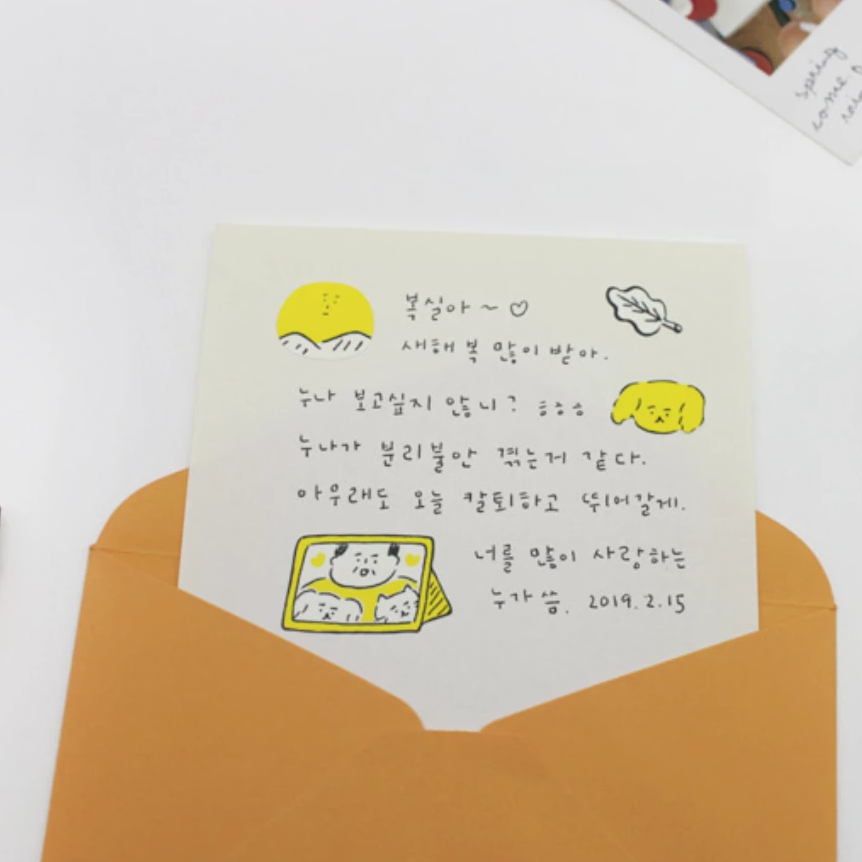 복실아 ~ ♡
새해 복 많이 받아.
누나 보고싶지 않니? ㅎㅎㅎ
누나가 분리불안 겪는거 같다.
아무래도 오늘 칼퇴하고 뛰어갈게.
너를 많이 사랑하는
누가 씀. 2019.2.15
spring
come